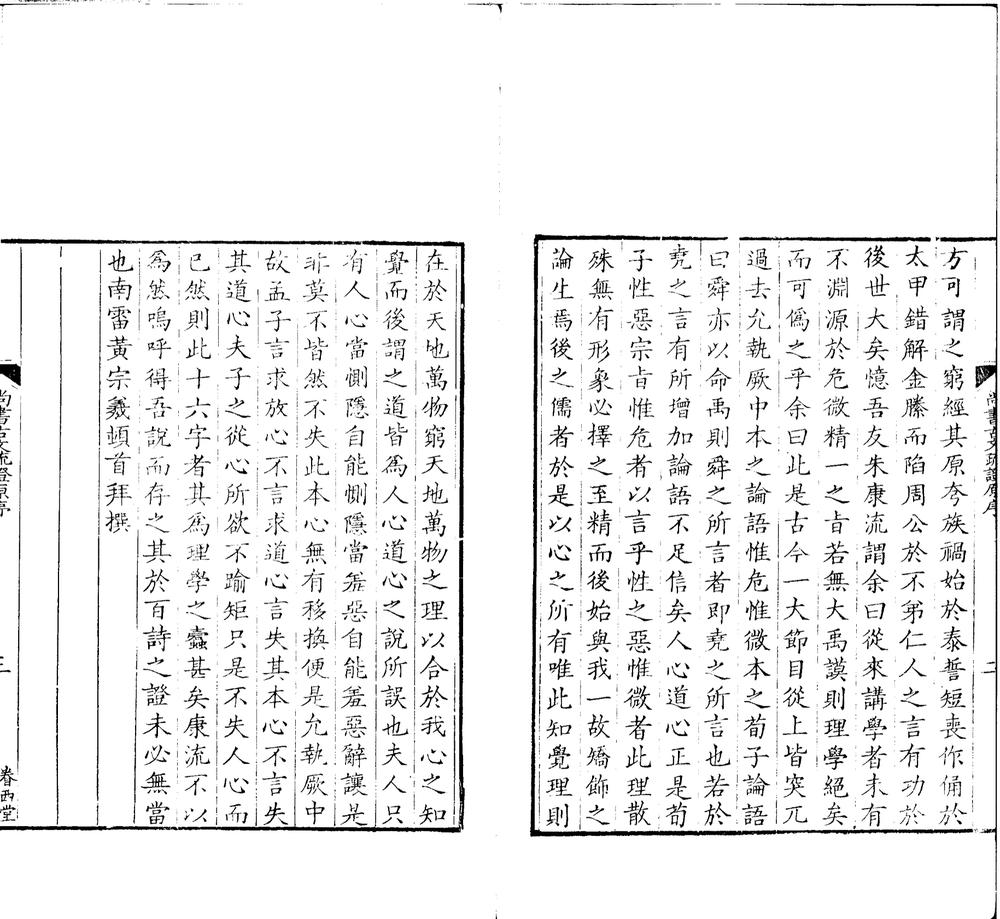 方可謂之窮經其原夸族禍始於泰誓短喪作俑於
太甲錯解金縢而陷周公於不弟仁人之言有功於
後世大矣憶吾友朱康流謂余曰從來講學者未有
不淵源於危微精一之旨若無大禹謨則理學絕矣
而可偽之乎余曰此是古今一大節目從上皆突兀
過去允執厥中本之論語惟危惟微本之荀子論語
曰舜亦以命禹則舜之所言者即堯之所言也若於
堯之言有所增加論語不足信矣人心道心正是荀
子性惡宗旨惟危者以言乎性之惡惟微者此理散
殊無有形象必擇之至精而後始與我一故矯飾之
論生焉後之儒者於是以心之所有唯此知覺理則
尚書古文疏證原序
二
在於天地萬物窮天地萬物之理以合於我心之知
覺而後謂之道皆為人心道心之說所誤也夫人只
有人心當惻隱自能惻隱當羞惡自能羞惡辭讓是
非莫不皆然不失此本心無有移換便是允執厥中
故孟子言求放心不言求道心言失其本心不言失
其道心夫子之從心所欲不踰矩只是不失人心而
已然則此十六字者其為理學之蠹甚矣康流不以
為然嗚呼得吾說而存之其於百詩之證未必無當
也南雷黃宗羲頓首拜撰
尚書古文疏證原序
三
眷西堂